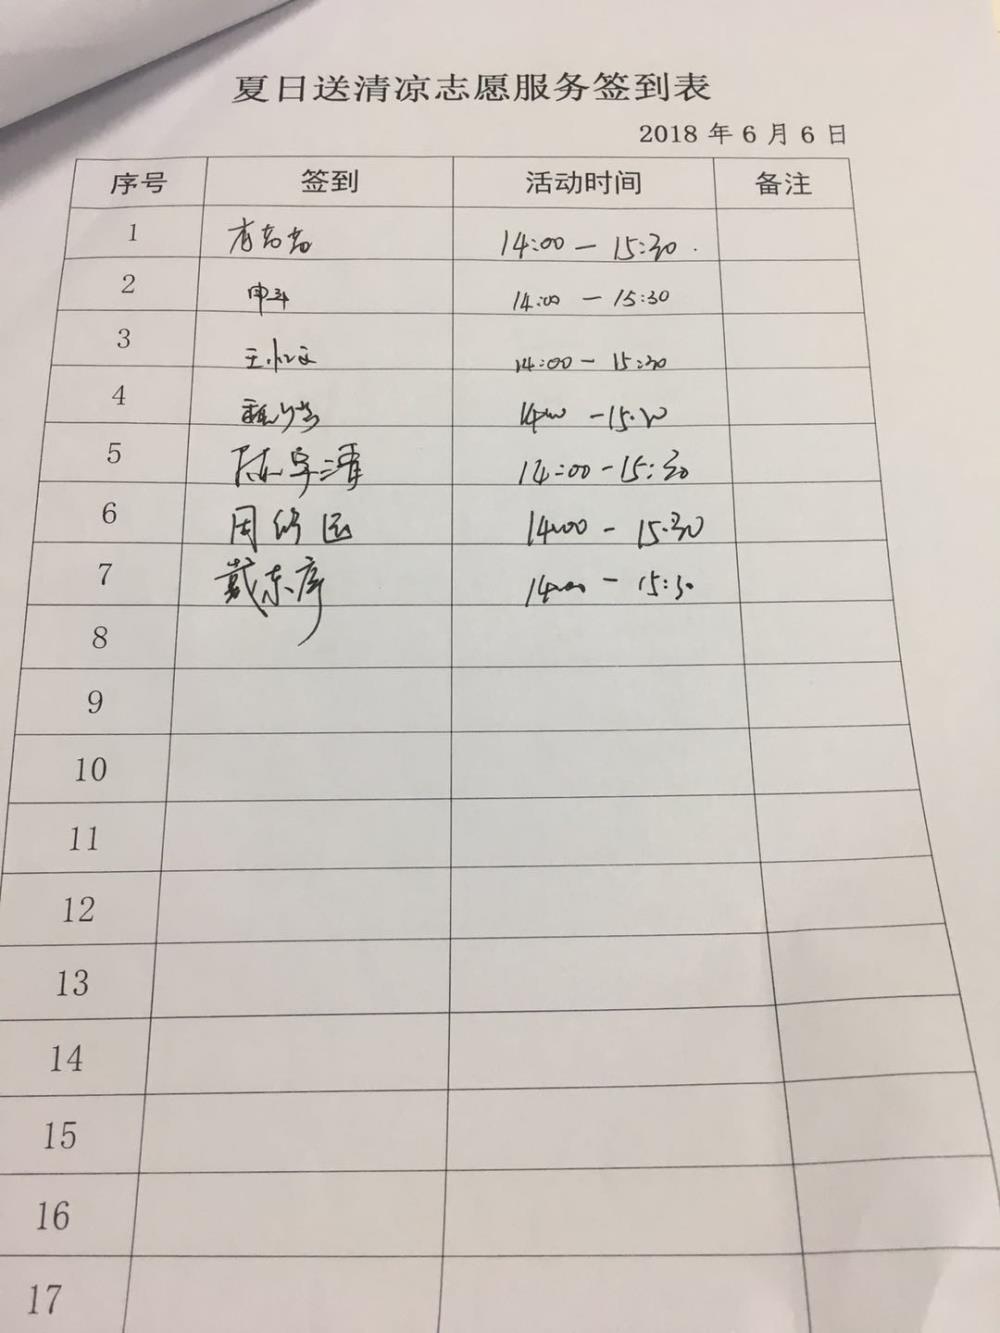 夏日送清凉志愿服务签到表
2018 年 6 月 6 日
序号 签到 活动时间 备注
1 14:00 — 15:30
2 申 14:00 — 15:30
3 王 14:00 — 15:30
4 14:00 — 15:30
5 陈宇清 14:00 - 15:30
6 周 14:00 - 15:30
7 戴东序 14:00 - 15:30
8
9
10
11
12
13
14
15
16
17